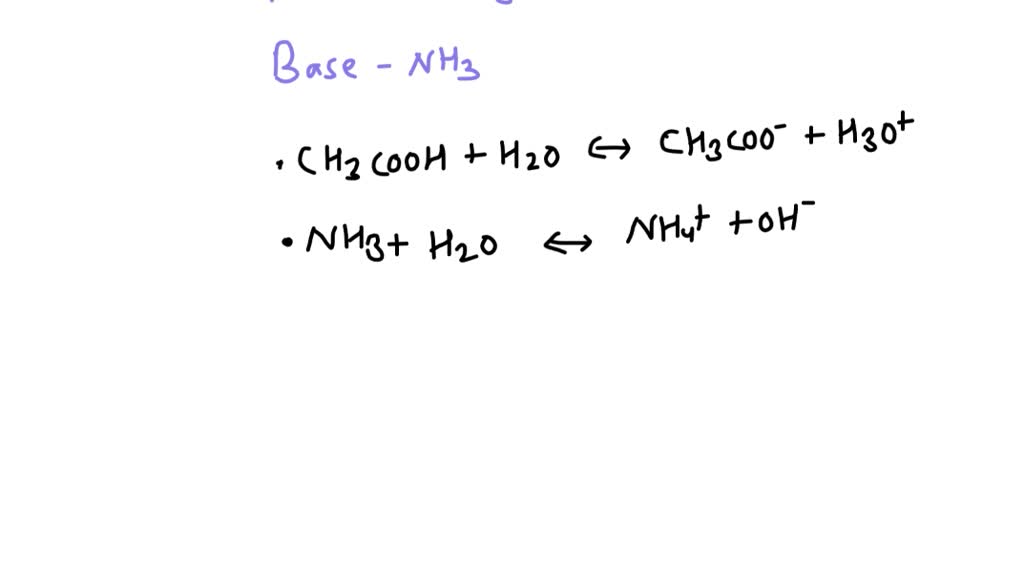 Base - NH3
• CH3COOH + H2O ↔ CH3COO⁻ + H3O⁺
• NH3 + H2O ↔ NH4⁺ + OH⁻